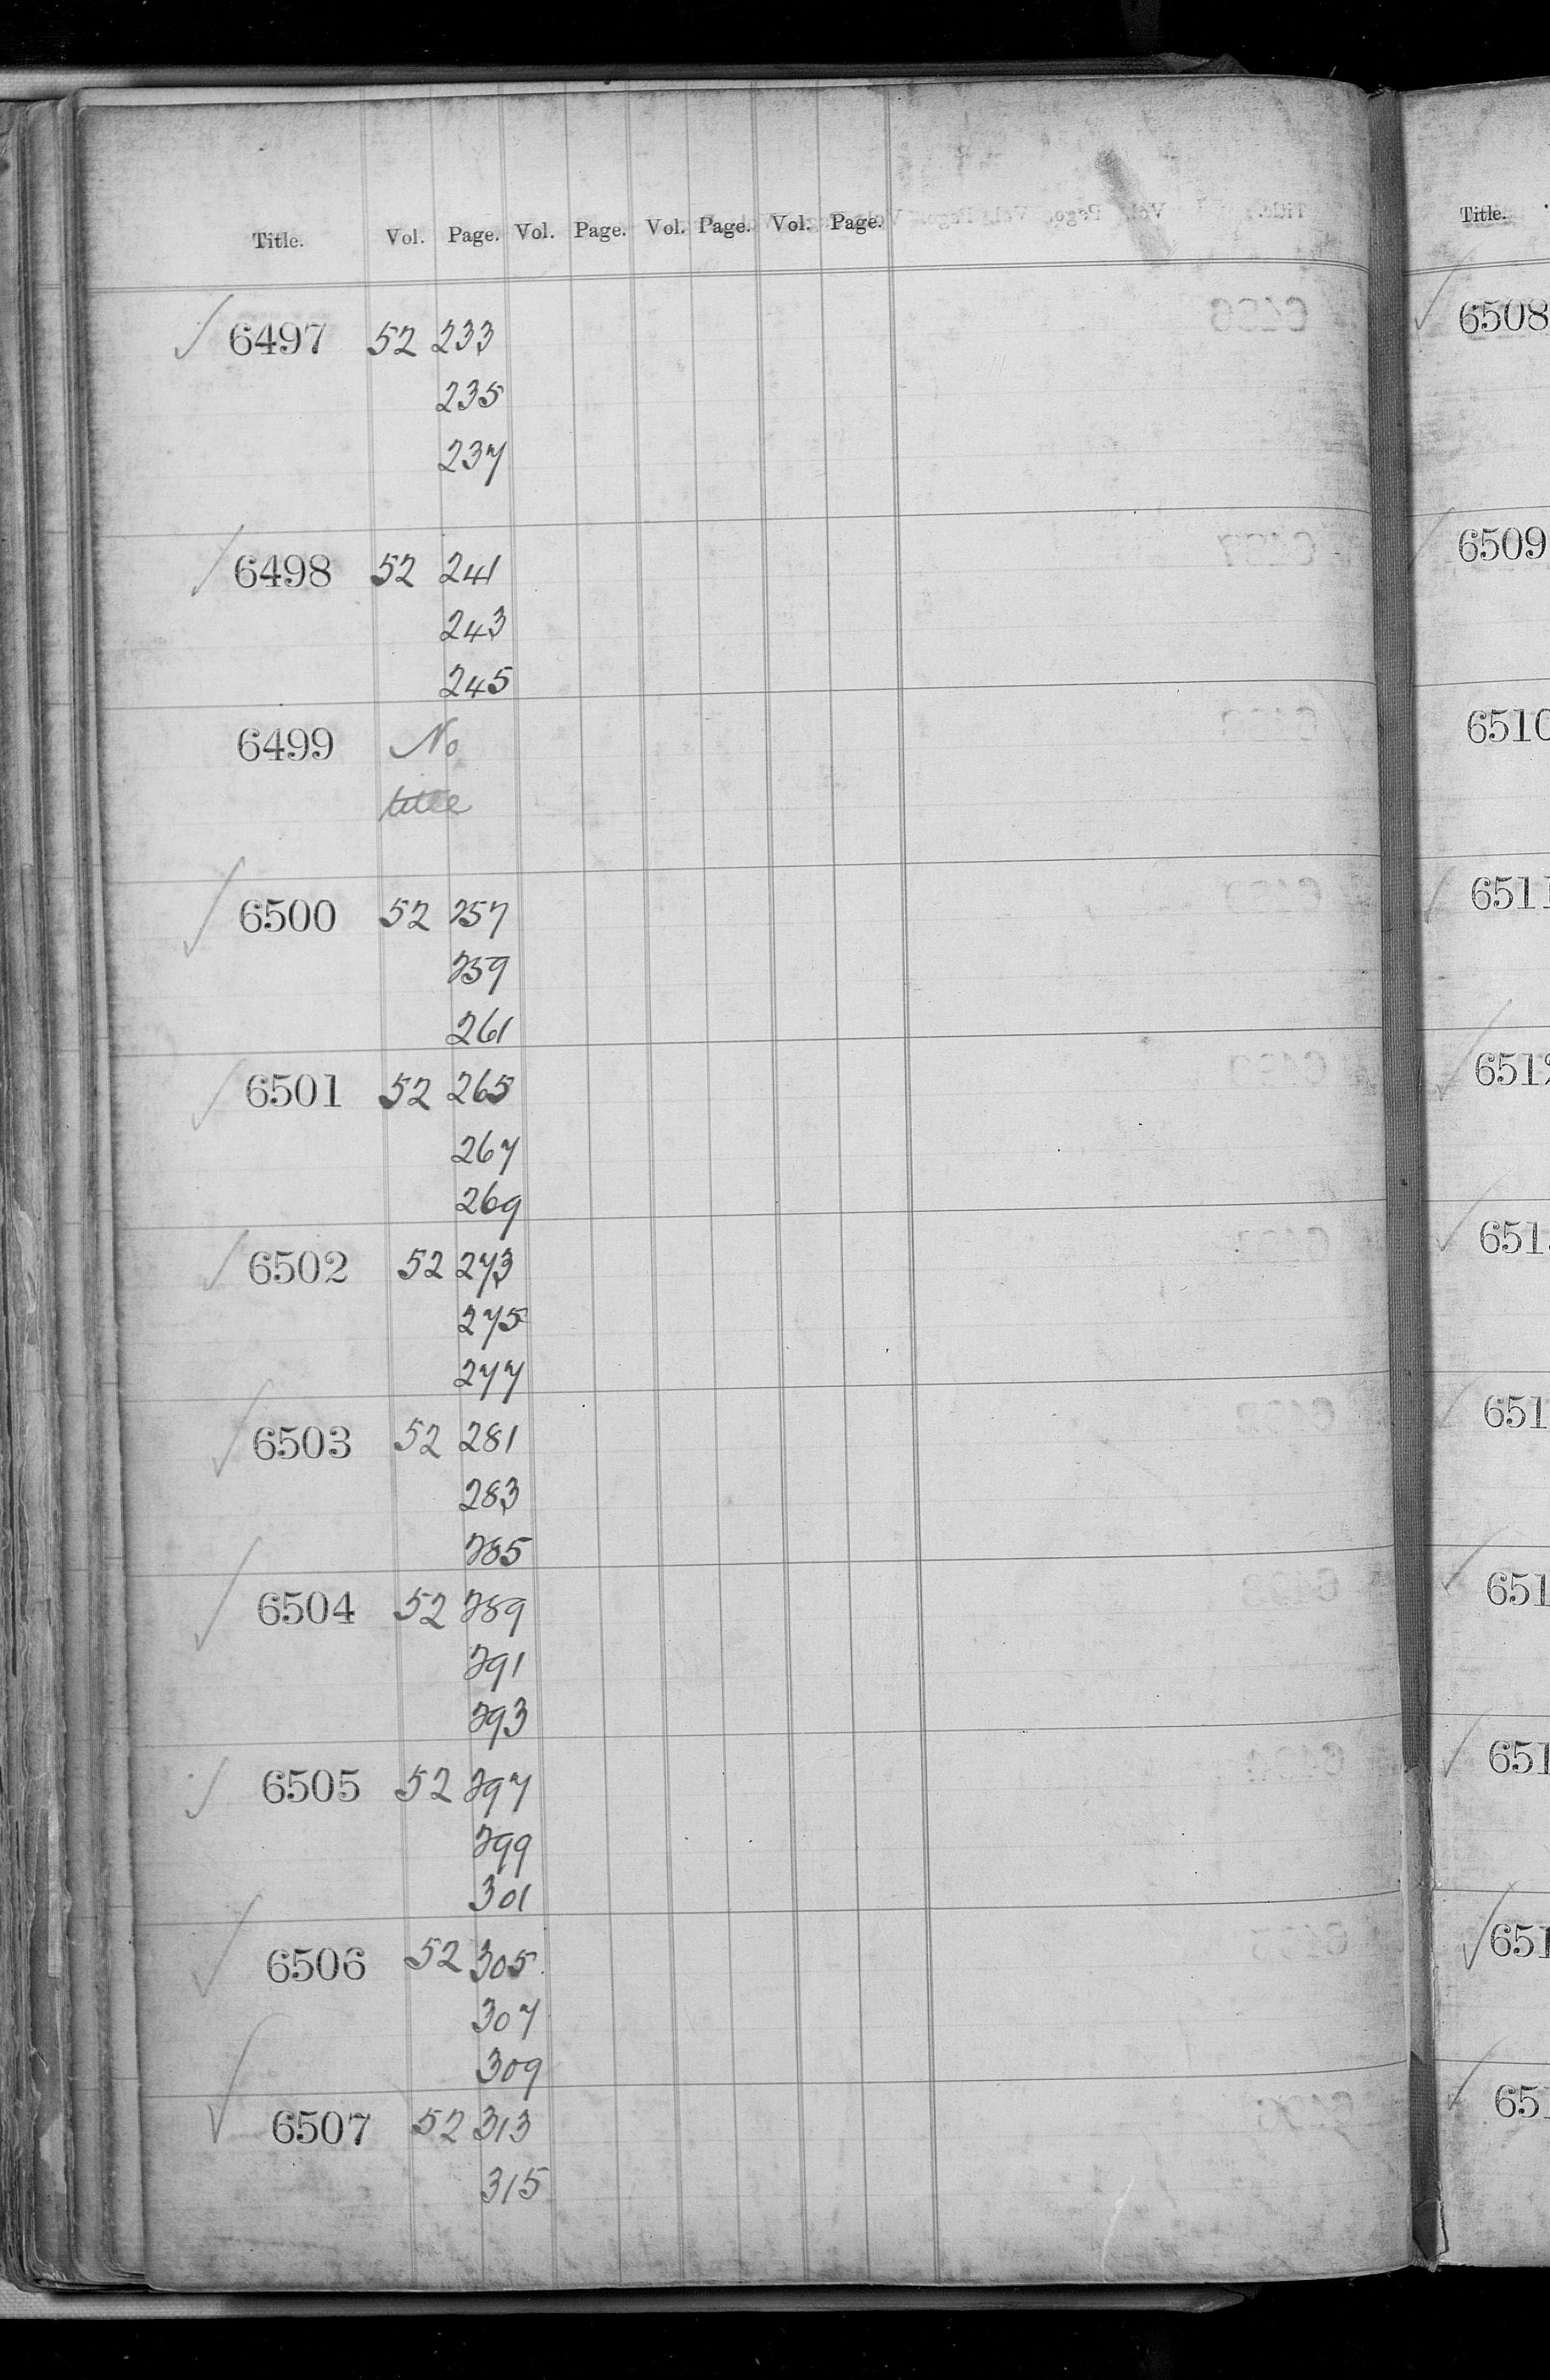 Title. Vol. Page. Vol. Page. Vol. Page. Vol. Page.
✓ 6497 52 233
235
237
✓ 6498 52 241
243
245
6499 No
title
✓ 6500 52 257
259
261
✓ 6501 52 265
267
269
✓ 6502 52 273
275
277
✓ 6503 52 281
283
285
✓ 6504 52 289
291
293
✓ 6505 52 297
299
301
✓ 6506 52 305
307
309
✓ 6507 52 313
315
Title.
✓ 6508
✓ 6509
6510
✓ 6511
✓ 651
✓ 651
✓ 651
✓ 651
✓ 651
✓ 651
✓ 651